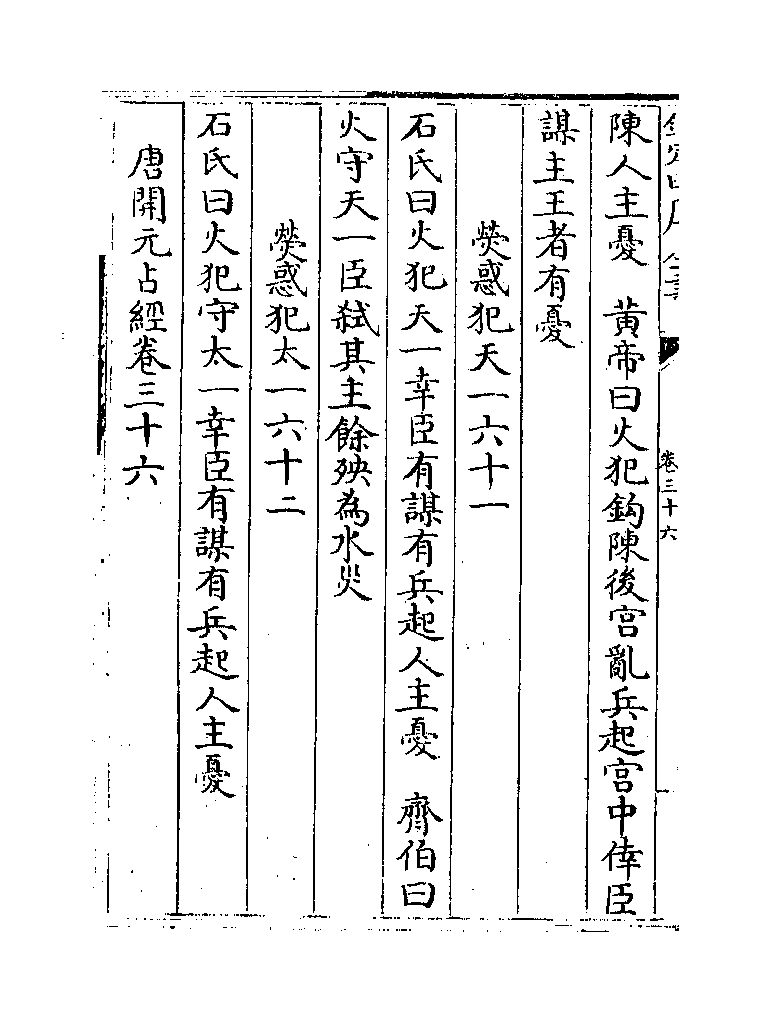 陳人主憂　黄帝曰火犯鈎陳後宫亂兵起宫中倖臣
謀主王者有憂
熒惑犯天一六十一
石氏曰火犯天一幸臣有謀有兵起人主憂　齊伯曰
火守天一臣弑其主餘殃為水災
熒惑犯太一六十二
石氏曰火犯守太一幸臣有謀有兵起人主憂
唐開元占經卷三十六
卷三十六